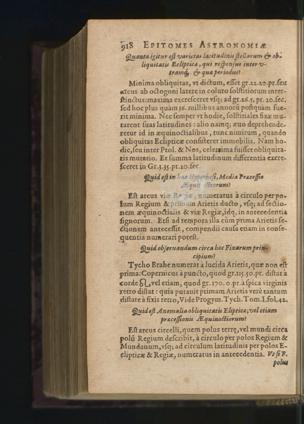 918 EPITOMES ASTRONOMIÆ
Quanta igitur est varietas latitudinis stellarum & ob-
liquitatis Eclipticæ, qui respondet inter v-
tramq́, & quæ periodus?
Minima obliquitas, vt dictum, esset gr. 22. 20. pr. seit
arcus ab octogoni latere in coluto solstitiorum inter-
stinctus: maxima excresceret vsq; ad gr. 26. 5, pr. 50. sec,
sed hoc plus quam 36. millibus annorum postquam fue-
rit minima. Nec semper vt hodie, solstitiales suis mu-
tarent suas latitudines: alio namq; æuo deprehende-
retur id in æquinoctialibus, tunc nimirum, quando
obliquitas Eclipticæ consisteret immobilis. Nam ho-
die, seu inter Ptol. & Nos, celerrima fuisset obliquita-
tis mutatio. Et summa latitudinum differentia excre-
sceret in Gr. 3. 35. pr. 20. sec.
Quid est in hac Media Præcessio
Æquinoctiorum?
Est arcus viæ Regiæ, numeratus à circulo per po-
lum Regium & primum Arietis ducto, vsq; ad sectio-
nem æquinoctialis & viæ Regiæ, idq, in antecedentia
signorum. Etsi ad tempora illa cum prima Arietis se-
ctionem antecessit, compendii causa etiam in conse-
quentia numerari potest.
Quid obseruandum circa hoc Fixarum prin-
cipium?
Tycho Brahe numerat à lucida Arietis, que non est
prima: Copernicus à puncto, quod gr. 195. 50. pr. distat à
corde vel etiam, quod gr. 170. 0 pr. à spica virginis
retro distat: quia putauit primam Arietis verè tantum
distare à fixis retro, Vide Progym. Tych. Tom. I. fol. 42.
Quid est Anomalia obliquitatis Elipticæ, vel etiam
præcessionis Æquinoctiorum?
Est arcus circelli, quem polus terrę, vel mundi circa
polū Regium describit, à circulo per polos Regium &
Mundanum, vsq; ad circulum latitudinis per polos E-
clipticæ & Regiæ, numeratus in antecedentia. Vt si P.
polus